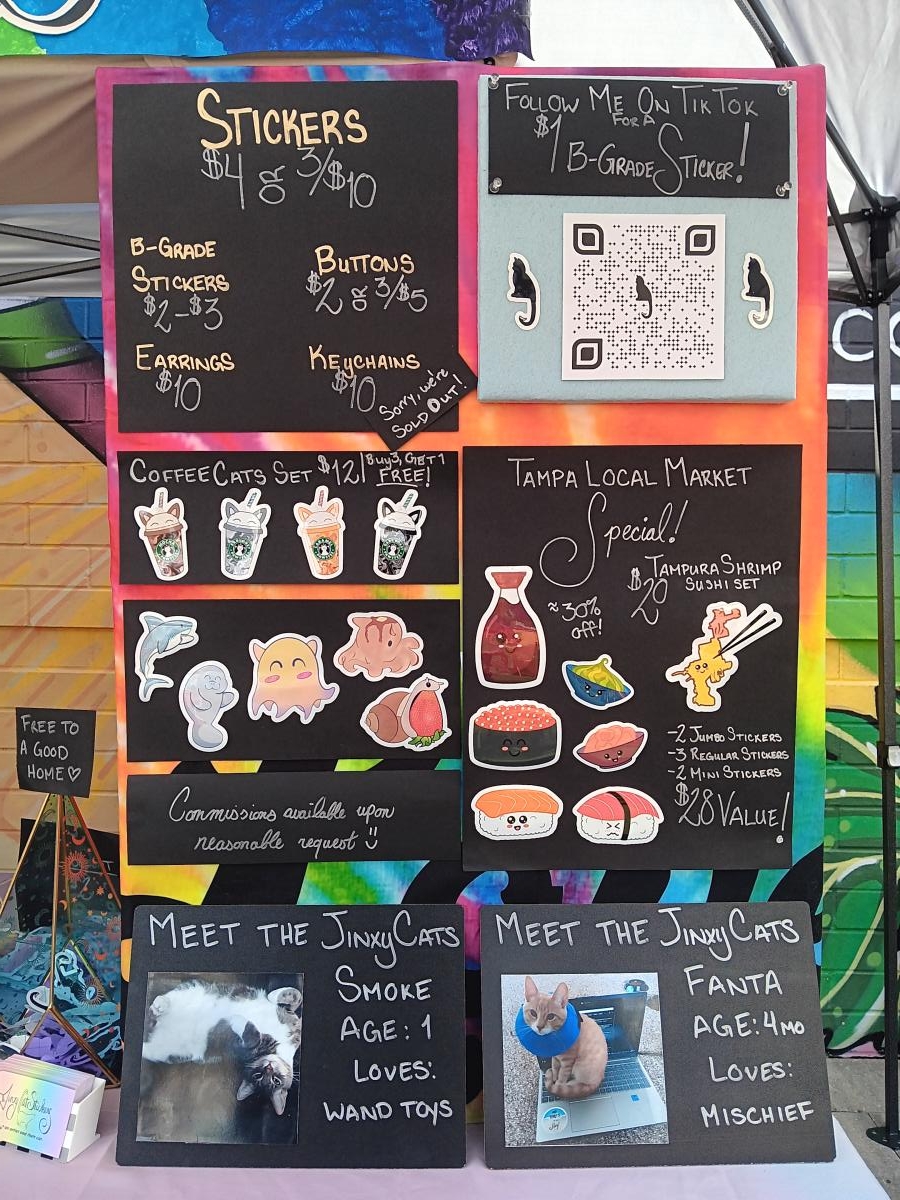 STICKERS
$4 or 3/$10
B-GRADE
STICKERS
$2-$3
BUTTONS
$2 or 3/$5
EARRINGS
$10
KEYCHAINS
$10
Sorry, we're
SOLD OUT!
FOLLOW ME ON TIKTOK
FOR A
$1 B-GRADE STICKER!
COFFEE CATS SET $12
Buy 3, GET 1
FREE!
TAMPA LOCAL MARKET
Special!
≈30%
off!
$20
TAMPURA SHRIMP
SUSHI SET
-2 JUMBO STICKERS
-3 REGULAR STICKERS
-2 MINI STICKERS
$28 VALUE!
Commissions available upon
reasonable request :)
FREE TO
A GOOD
HOME♡
MEET THE JINXYCATS
SMOKE
AGE: 1
LOVES:
WAND TOYS
MEET THE JINXYCATS
FANTA
AGE: 4 MO
LOVES:
MISCHIEF
CO